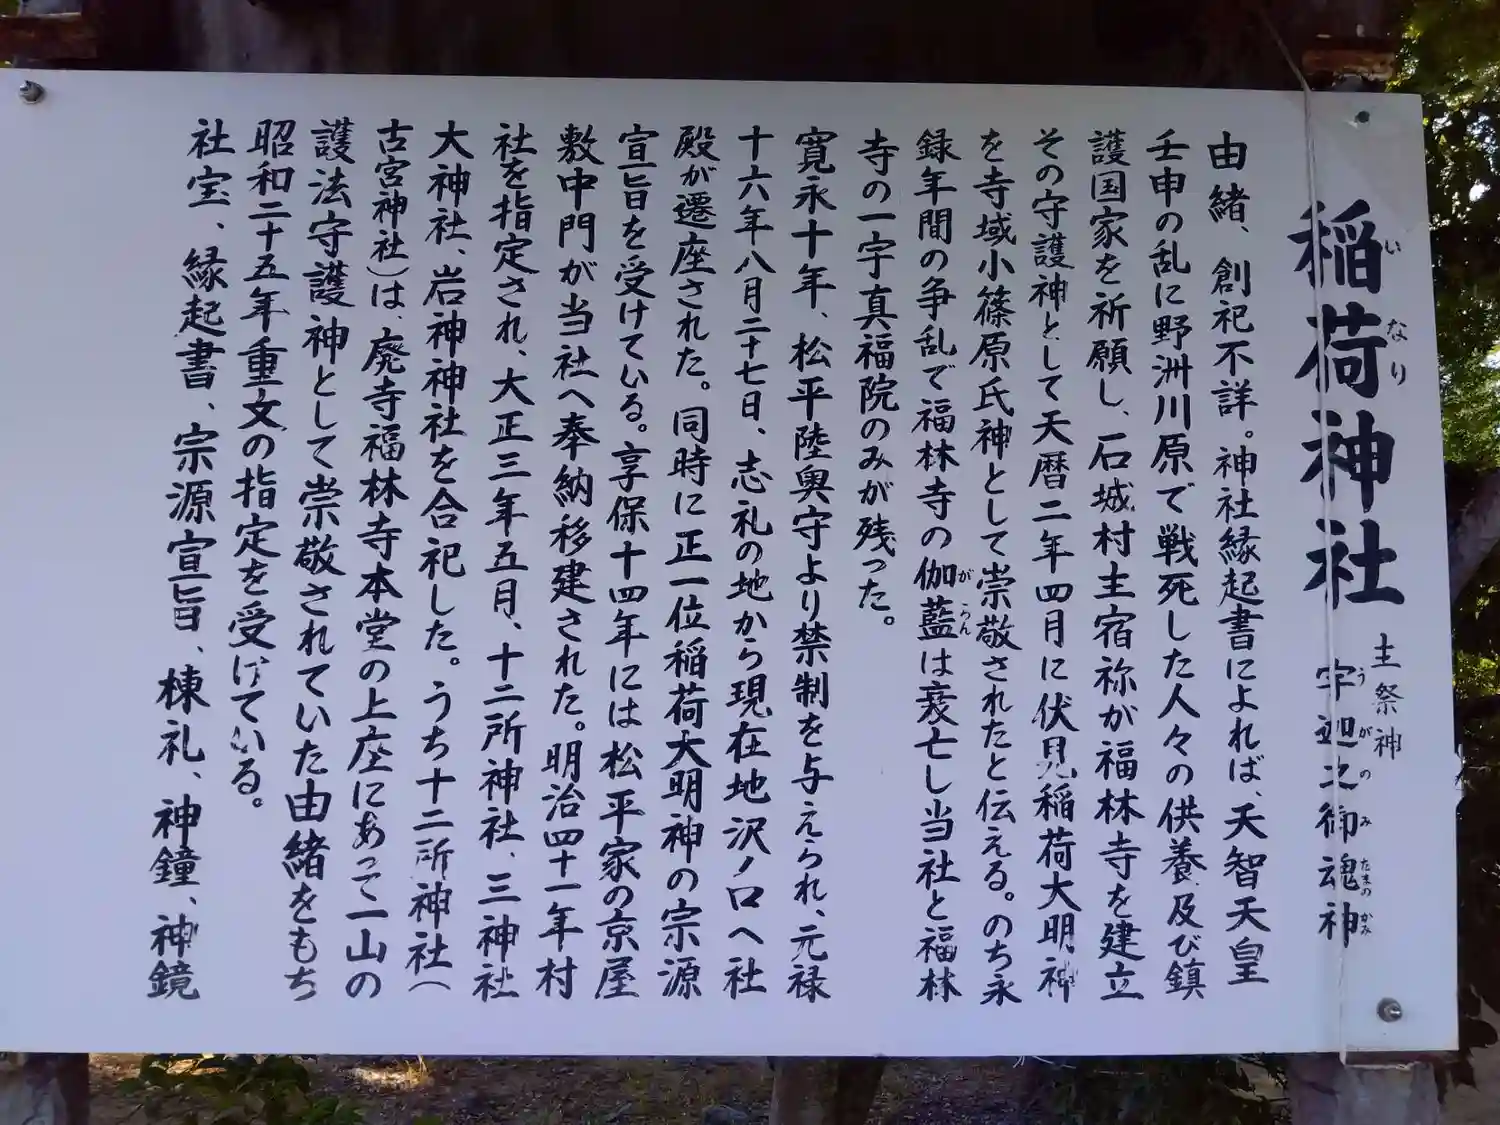 稲荷神社
いなり
主祭神
宇迦之御魂神
うがのみたまのかみ
由緒、創祀不詳。神社縁起書によれば、天智天皇
壬申の乱に野洲川原で戦死した人々の供養及び鎮
護国家を祈願し、石城村主宿祢が福林寺を建立
その守護神として天暦二年四月に伏見稲荷大明神
を寺域小篠原氏神として崇敬されたと伝える。のち永
録年間の争乱で福林寺の伽藍は衰亡し当社と福林
がらん
寺の一宇真福院のみが残った。
寛永十年、松平陸奥守より禁制を与えられ、元禄
十六年八月二十七日、志礼の地から現在地沢ノ口へ社
殿が遷座された。同時に正一位稲荷大明神の宗源
宣旨を受けている。享保十四年には松平家の京屋
敷中門が当社へ奉納移建された。明治四十一年村
社を指定され、大正三年五月、十二所神社、三神社
大神社、岩神神社を合祀した。うち十二所神社(
古宮神社)は、廃寺福林寺本堂の上座にあって一山の
護法守護神として崇敬されていた由緒をもち
昭和二十五年重文の指定を受けている。
社宝、縁起書、宗源宣旨、棟礼、神鐘、神鏡